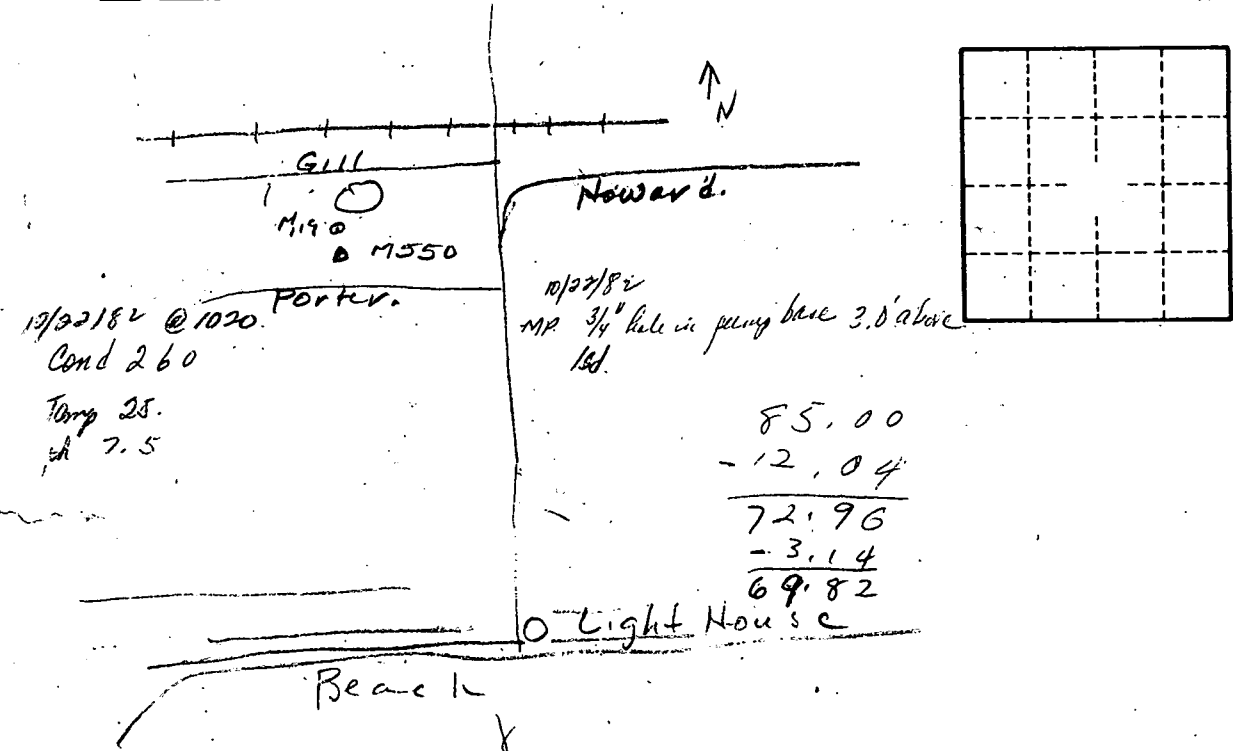 N
Gill
Howard.
M190
M550
Porter.
10/22/82 @ 1020.
Cond 260
Temp 25.
ph 7.5
10/22/82
MP. 3/4" hole in pump base 3.0' above
lsd.
85.00
-12.04
72.96
-3.14
69.82
Light House
Beach